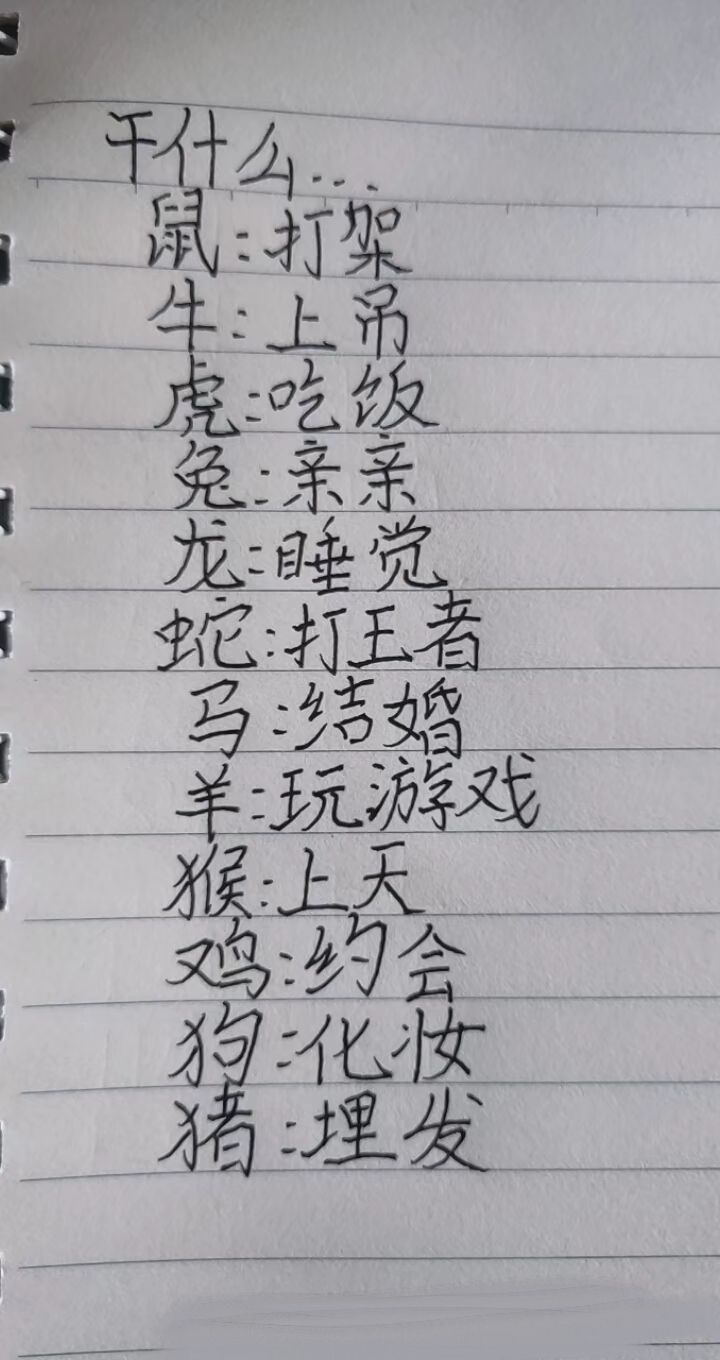 干什么...
鼠:打架
牛:上吊
虎:吃饭
兔:亲亲
龙:睡觉
蛇:打王者
马:结婚
羊:玩游戏
猴:上天
鸡:约会
狗:化妆
猪:埋发